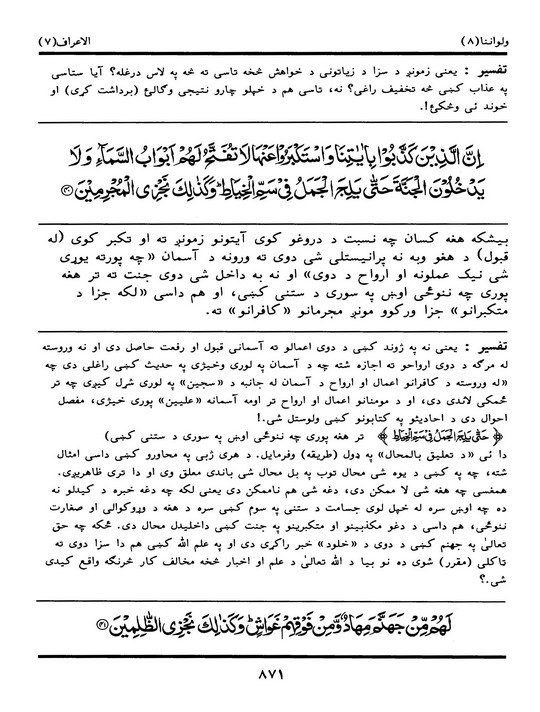 ولواننا(۸) الاعراف(۷)
تفسیر : یعنی زمونږ د سزا د زیاتونی د خواهش څخه تاسی ته څه په لاس درغله؟ آیا ستاسی
په عذاب کښی څه تخفیف راغی؟ نه، تاسی هم د خپلو چارو نتیجی وګالئ (برداشت کړی) او
خوند ئی وڅکئ!.
اِنَّ الَّذِیْنَ کَذَّبُوْا بِاٰیٰتِنَا وَاسْتَکْبَرُوْا عَنْهَا لَا تُفَتَّحُ لَهُمْ اَبْوَابُ السَّمَآءِ وَلَا
یَدْخُلُوْنَ الْجَنَّةَ حَتّٰی یَلِجَ الْجَمَلُ فِیْ سَمِّ الْخِیَاطِ ؕ وَکَذٰلِكَ نَجْزِی الْمُجْرِمِیْنَ ﴿۴۰﴾
بیشکه هغه کسان چه نسبت د دروغو کوی آیتونو زمونږ ته او تکبر کوی (له
قبول) د هغو وبه نه پرانیستلی شی دوی ته ورونه د آسمان «چه پورته یوړی
شی نیک عملونه او ارواح د دوی» او نه به داخل شی دوی جنت ته تر هغه
پوری چه ننوځی اوښ په سوری د ستنی کښی، او هم داسی «لکه جزا د
متکبرانو» جزا ورکوو مونږ مجرمانو «کافرانو» ته.
تفسیر : یعنی نه په ژوند کښی د دوی اعمالو ته آسمانی قبول او رفعت حاصل دی او نه وروسته
له مرګه د دوی ارواحو ته اجازه شته چه د آسمان په لوری وخیژی په حدیث کښی راغلی دی چه
«له وروسته د کافرانو اعمال او ارواح د آسمان له جانبه د «سجین» په لوری شړل کیږی چه تر
ځمکی لاندی دی، او د مومنانو اعمال او ارواح تر اومه آسمانه «علیین» پوری خیژی، مفصل
احوال دی د احادیثو په کتابونو کښی ولوستل شی.!
﴿حَتّٰی یَلِجَ الْجَمَلُ فِیْ سَمِّ الْخِیَاطِ﴾ تر هغه پوری چه ننوځی اوښ په سوری د ستنی کښی)
دا ئی «د تعلیق بالمحال» په ډول (طریقه) وفرمایل. د هری ژبی په محاورو کښی داسی امثال
شته، چه په کښی د یوه شی محال توب په بل محال شی باندی معلق وی او دا تری ظاهریږی.
همغسی چه هغه شی لا ممکن دی، دغه شی هم ناممکن دی یعنی لکه چه دغه خبره د کیدلو نه
ده چه اوښ سره له خپل لوی جسامت د ستنی په سوم کښی سره د هغه د وړوکوالی او صغارت
ننوځی، هم داسی د دغو مکذبینو او متکبرینو په جنت کښی داخلیدل محال دی. ځکه چه حق
تعالیٰ په جهنم کښی د دوی د «خلود» خبر راکړی دی او په علم الله کښی هم دا سزا دوی ته
تاکلی (مقرر) شوی ده نو بیا د الله تعالیٰ د علم او اخبار څخه مخالف کار څرنګه واقع کیدی
شی.؟
لَهُمْ مِّنْ جَهَنَّمَ مِهَادٌ وَّمِنْ فَوْقِهِمْ غَوَاشٍ ؕ وَکَذٰلِكَ نَجْزِی الظّٰلِمِیْنَ ﴿۴۱﴾
۸۷۱